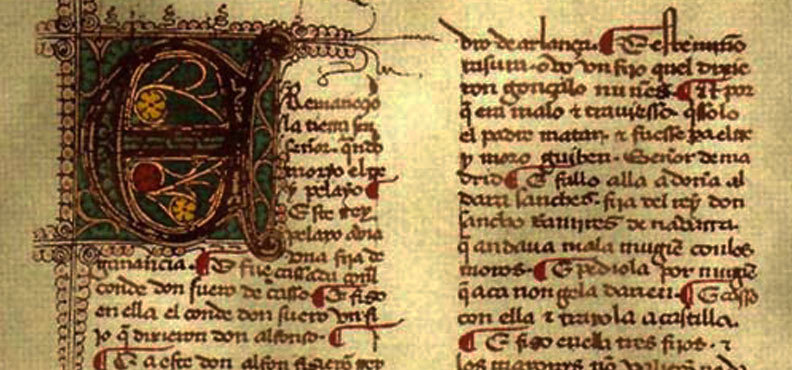 E Remanezio
la tierra sin
señor. qndo
morio el re
y pelayo
Este rey
pelayo auia
vna fija de
ganançia. E fue cassada con l
conde don suero de casso E fizo
en ella el conde don suero vn fi
jo q̃ dixieron don alfonso.
E a este don alfon fizieron rey
dro de arlança. E este nunno
rasura. odo vn fijo quel dixie
ron gonçalo nunes. E por
q̃ era malo & trauiesso. q̃ssolo
el padre matar. & fuesse pa el re
y moro guiben. Señor de ma
drid. E fallo alla a doña al
dara sanches. fija del rey don
sancho Ramires de nauarra.
q̃ andaua mala mugier con los
moros. E pediola por mugier
q̃ aca non gela darien. E casso
con ella & traxola a castilla.
E fizo en ella tres fijos. &
los mayores no